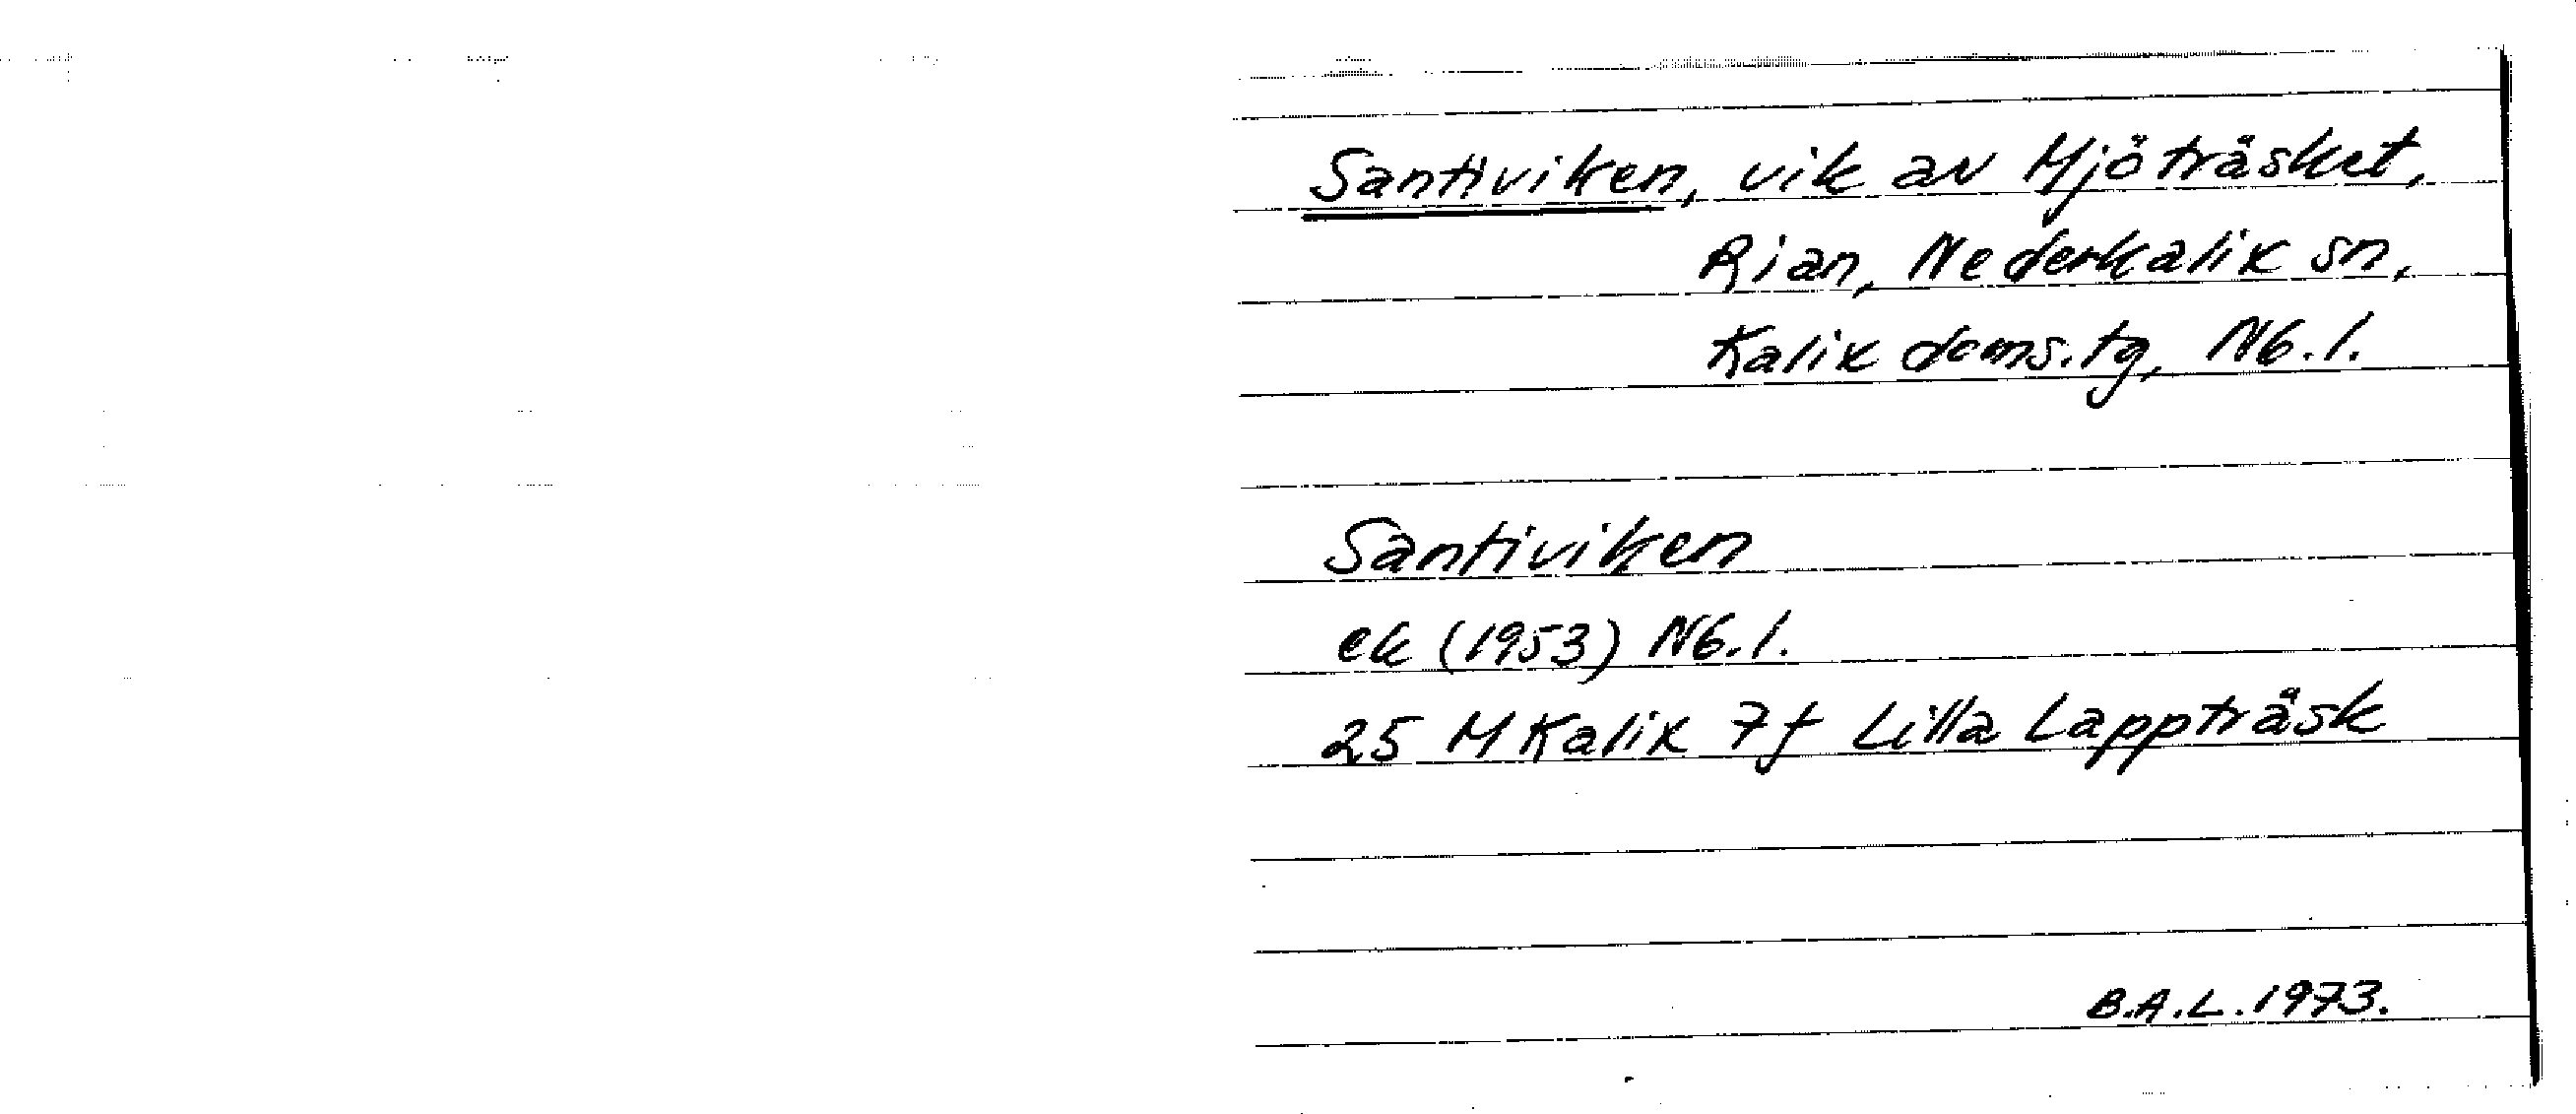 Santiviken, vik av Mjöträsket,
Rian, Nederkalix sn,
Kalix doms.tg, Nb.l.
Santiviken
ek (1953) Nb.l.
25 M Kalix 7f Lilla Lappträsk
B.A.L. 1973.